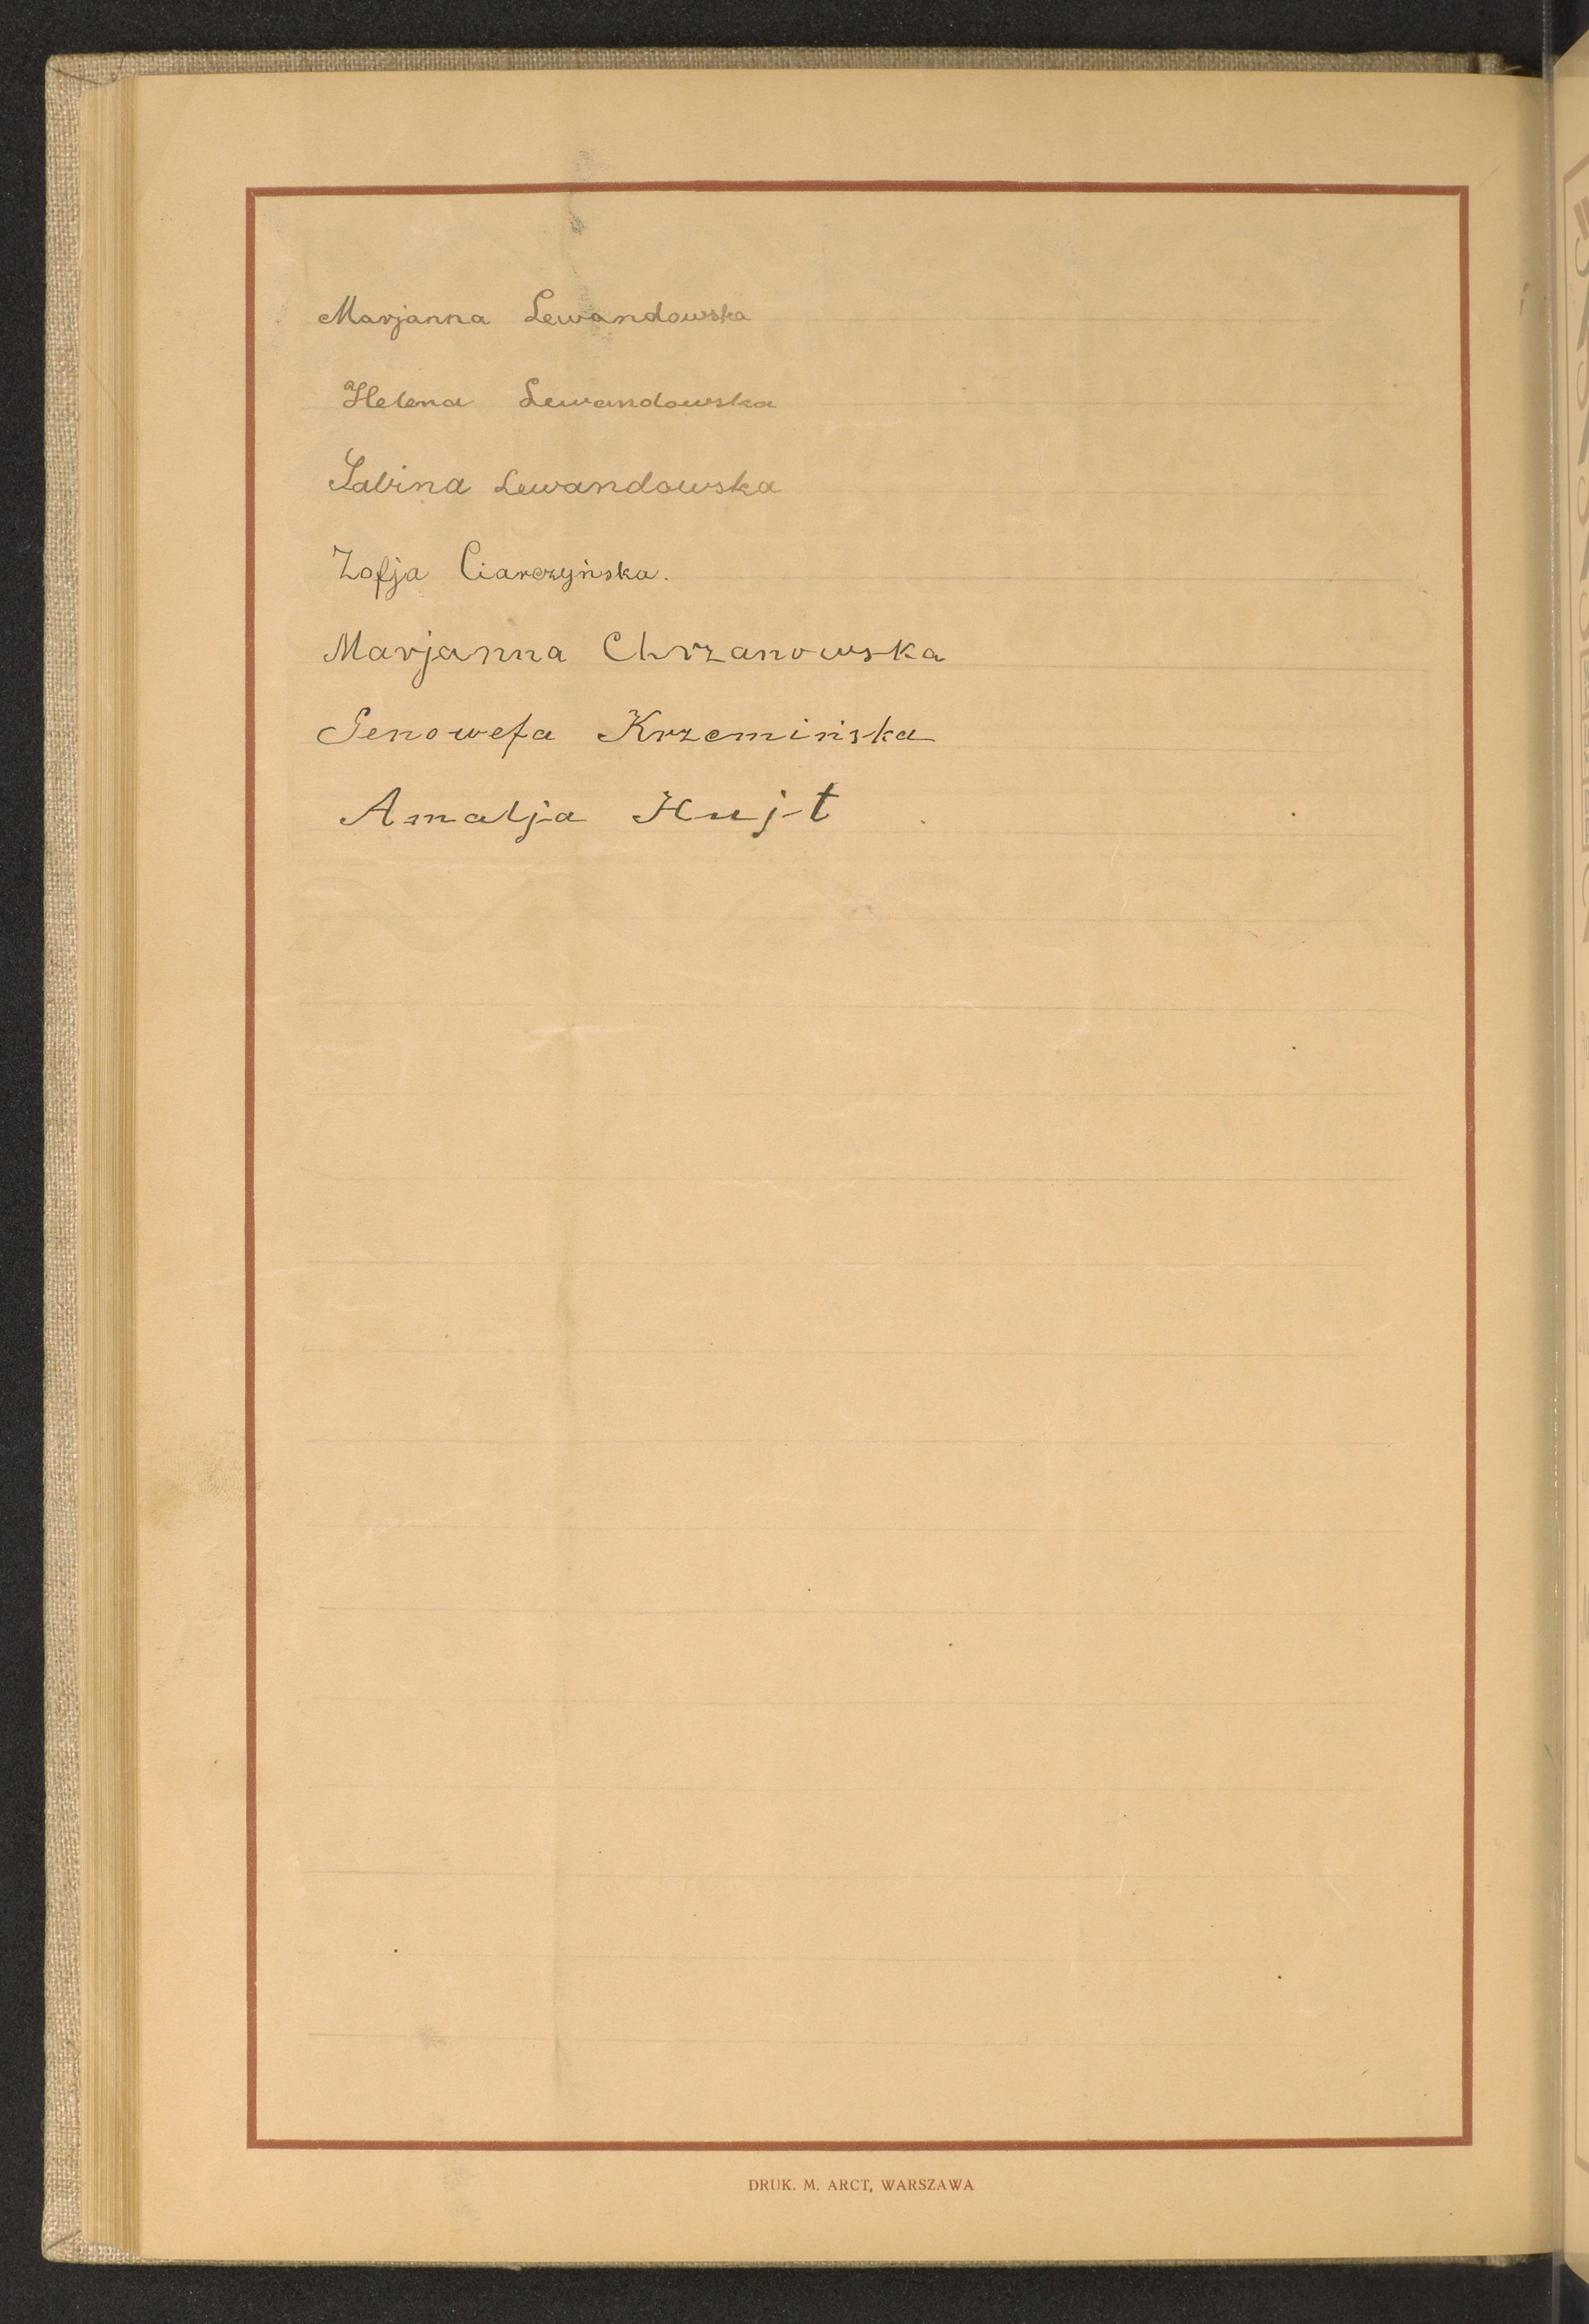 Marjanna Lewandowska
Helena Lewandowska
Sabina Lewandowska
Zofja Ciarczyńska.
Marjanna Chrzanowska
Genowefa Krzemińska
Amalja Hujt
DRUK. M. ARCT, WARSZAWA